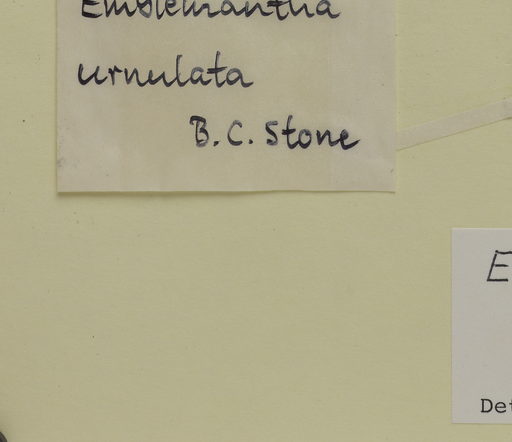 Emblemantha
urnulata
B. C. Stone
E
Det